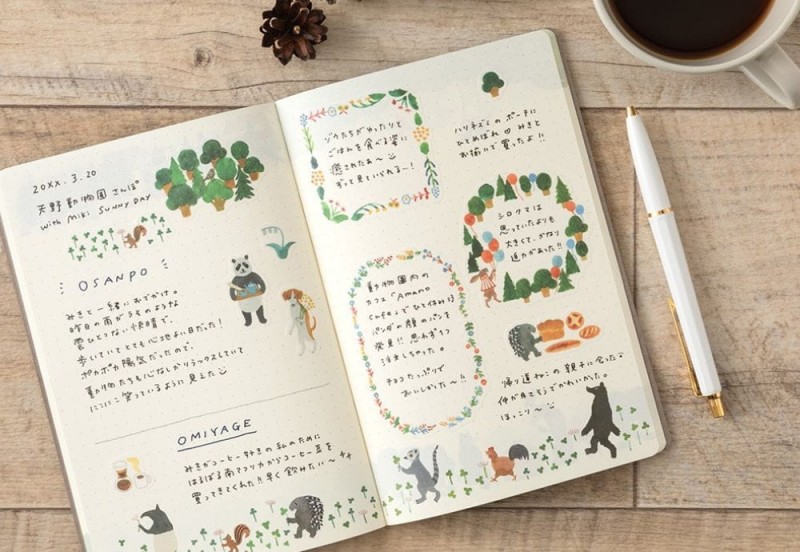 20XX.3.20
天野動物園さんぽ
with Miki SUNNY DAY
OSANPO
みきと一緒におでかけ。
昨日の雨がうそのような
雲ひとつない快晴で、
歩いていてとても心地よい日だった！
ポカポカ陽気だったので、
動物たちも心なしかリラックスしていて
にこにこ笑っているように見えた
OMIYAGE
みきがコーヒー好きの私のために
はるばる南アフリカからコーヒー豆を
買ってきてくれた!! 早く飲みたい〜
ゾウたちがゆったりと
ごはんを食べる姿に
癒されたぁ〜
ずっと見ていられるー！
動物園内の
カフェ「Amano
Coffee」でひと休み
パンダの顔のパンを
発見!! 思わず1つ
注文しちゃった。
チョコたっぷりで
おいしかった〜!!
ハリネズミのポーチに
ひとめぼれ みきと
お揃いで買ったよ!!
シロクマは
思っていたよりも
大きくて、かなり
迫力があった!!
帰り道ねこの親子に会った
仲が良さそうでかわいかった。
ほっこり〜